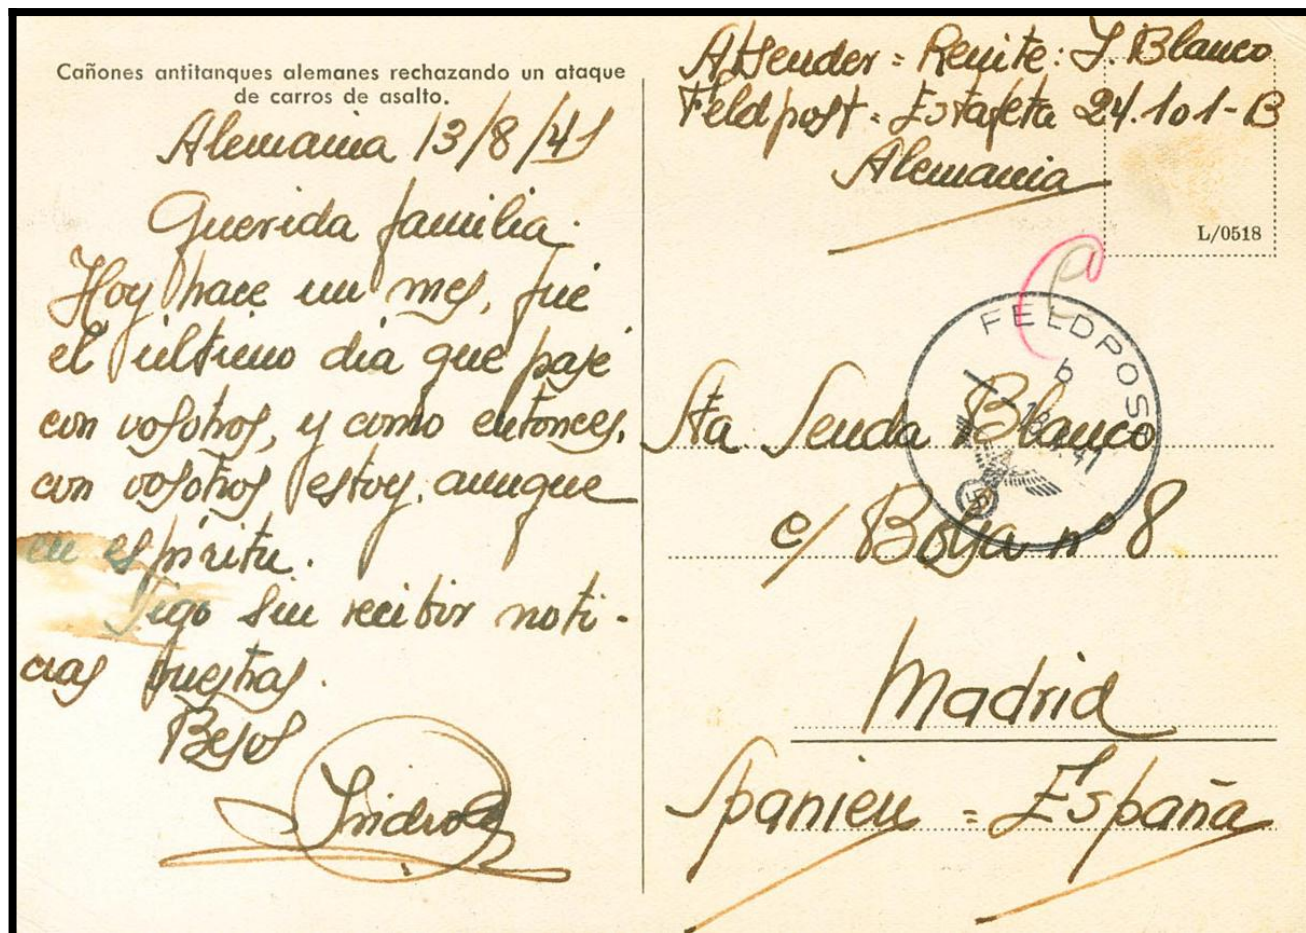 Cañones antitanques alemanes rechazando un ataque
de carros de asalto.
Alemania 13/8/41
Querida familia:
Hoy hace un mes, fué
el último dia que pasé
con vosotros, y como entonces,
con vosotros estoy, aunque
en espíritu.
Sigo sin recibir noti-
cias vuestras.
Besos
Isidro
Absender = Remite: I. Blanco
Feldpost = Estafeta 24.101-B
Alemania
L/0518
FELDPOST
b
Sta. Senda Blanco
c/ Borja nº 8
Madrid
Spanien = España